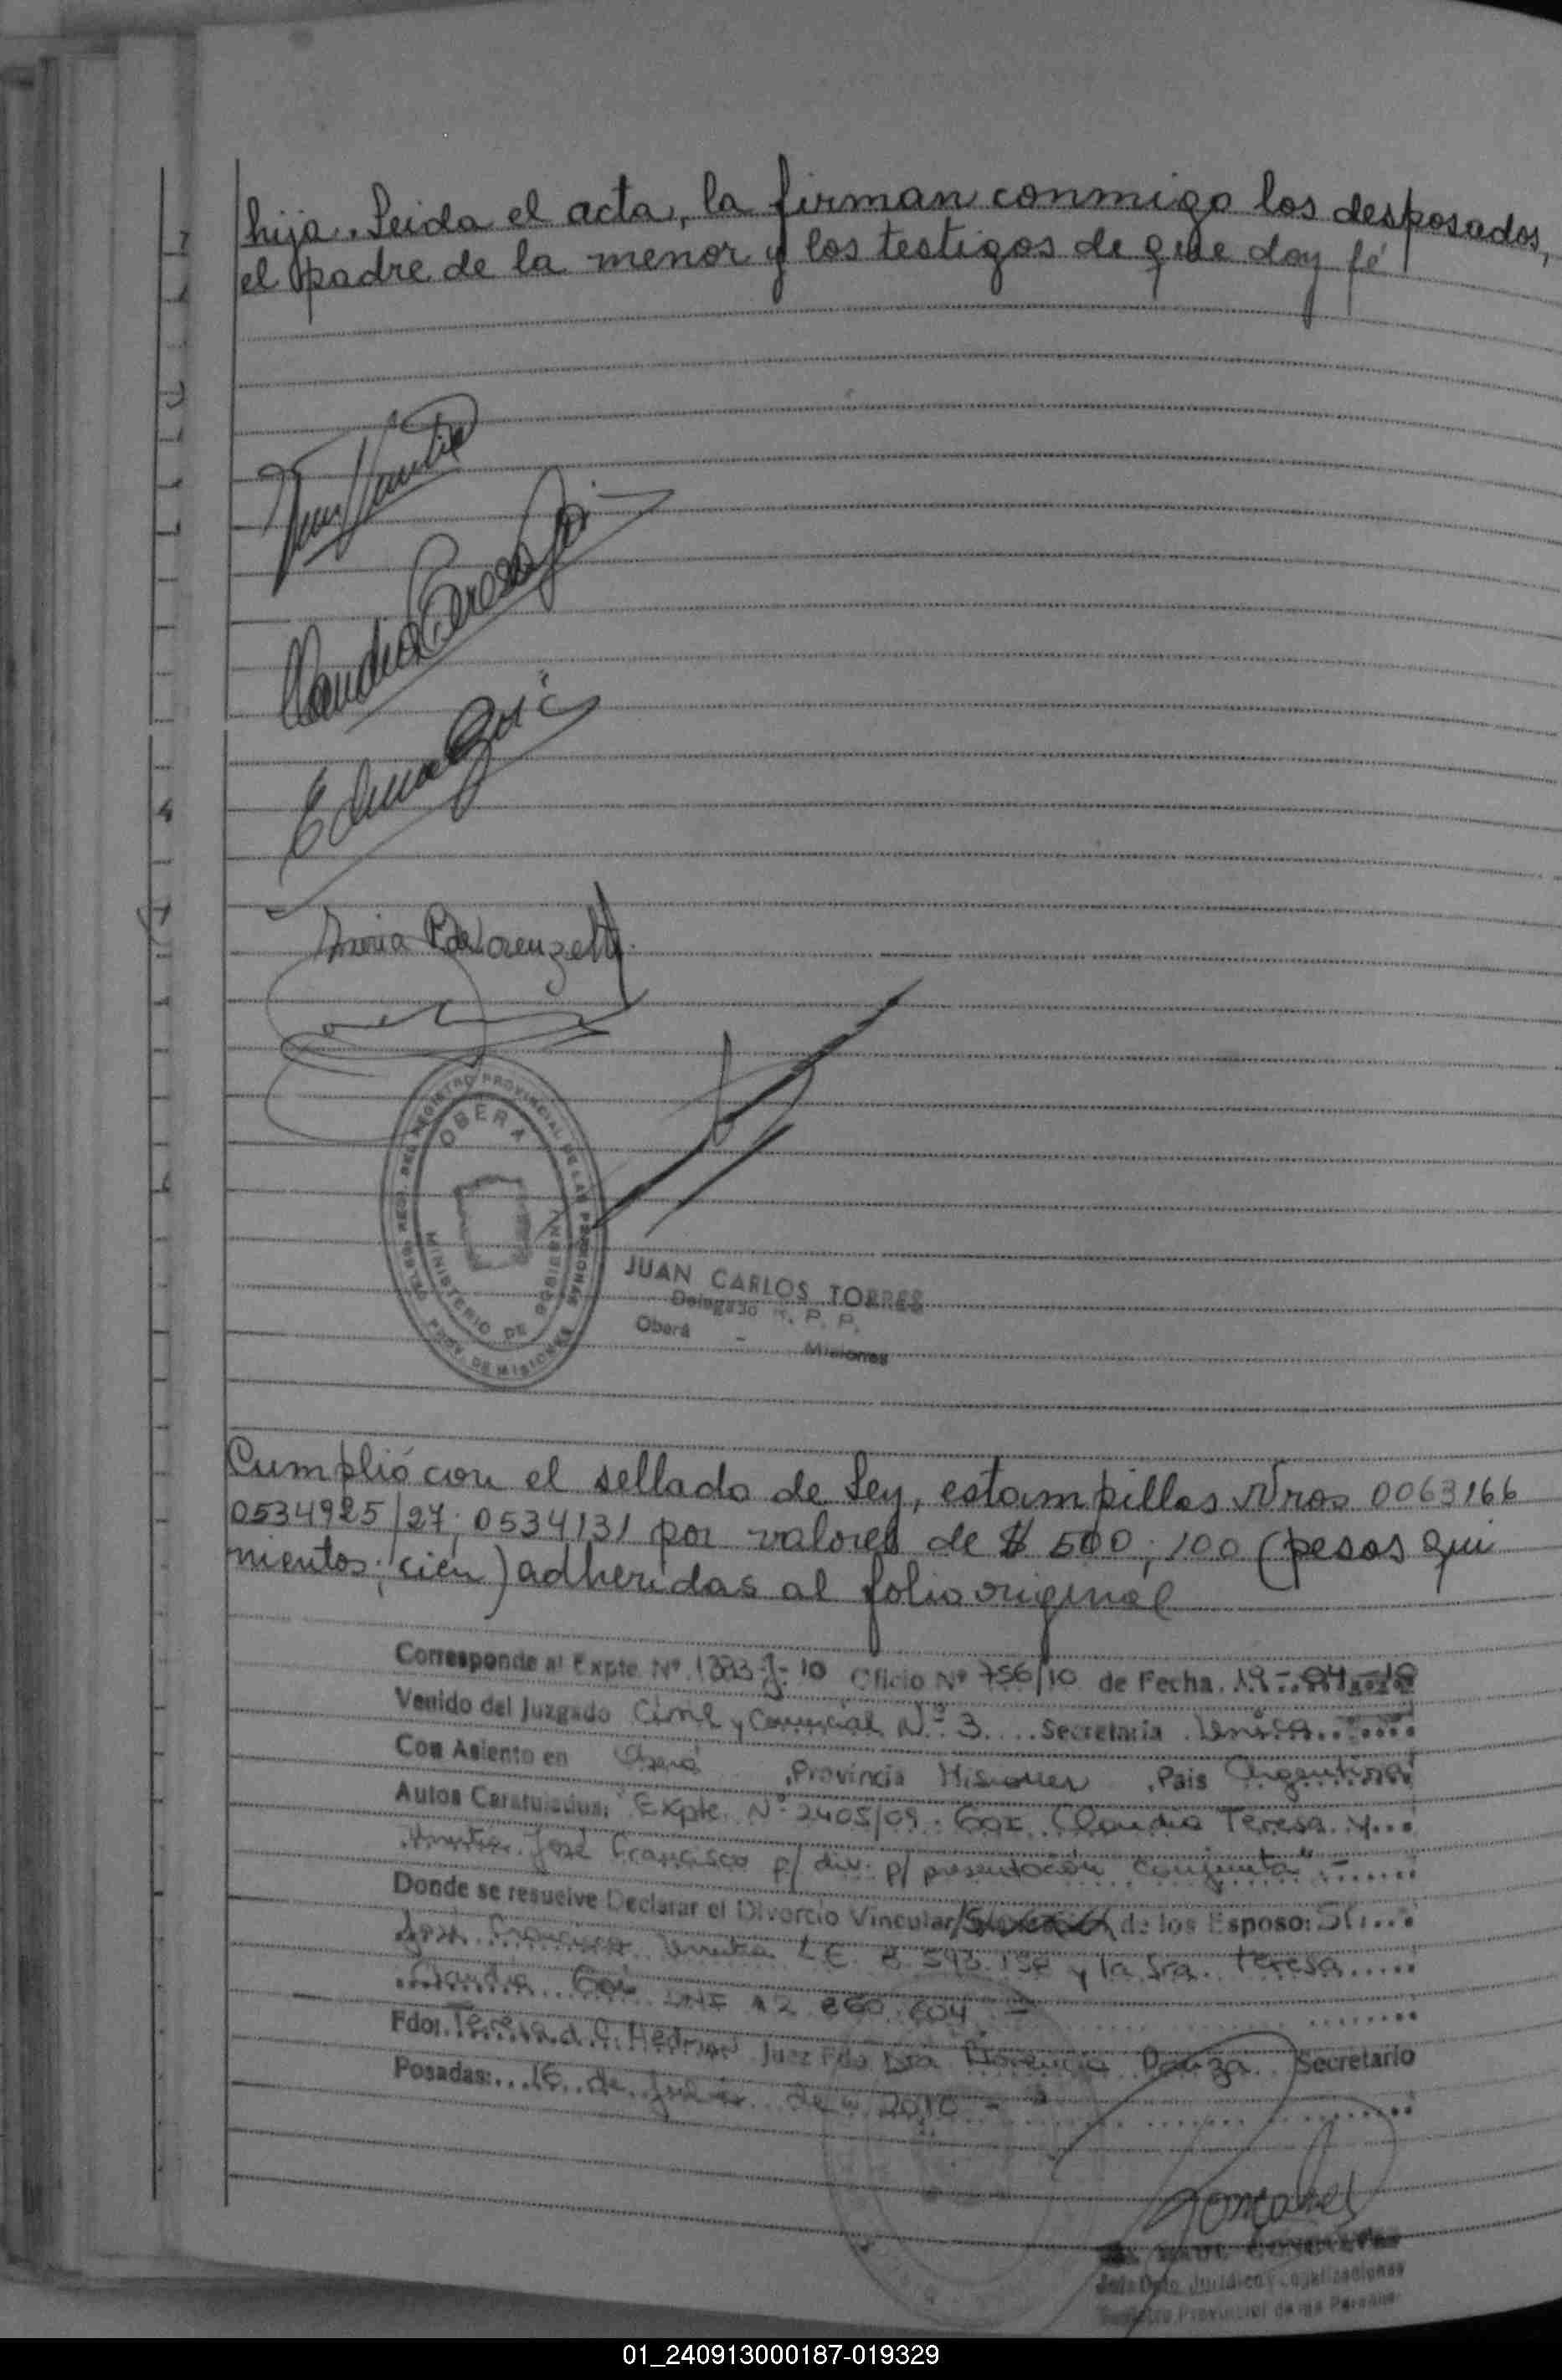 hija. Leida el acta, la firman conmigo los desposados,
el padre de la menor y los testigos de que doy fé
Claudia Teresa
DELEG. REGI. DEL REGISTRO PROVINCIAL DE LAS PERSONAS
OBERA
MINISTERIO DE GOBIERNO
PROV. DE MISIONES
JUAN CARLOS TORRES
Delegado R. P. P.
Oberá - Misiones
Cumplió con el sellado de Ley, estampillas Nros 0063166
0534925/27; 0534131 por valores de $ 500; 100 (pesos qui
nientos; cien) adheridas al folio original
Corresponde al Expte. Nº 1383-J-10 Oficio Nº 756/10 de Fecha. 19-04-10
Venido del Juzgado Civil y Comercial Nº 3 Secretaría Unica
Con Asiento en Oberá, Provincia Misiones, Pais Argentina
Autos Caratulados: "Expte. Nº 2405/09. Claudia Teresa y
José Francisco p/ div. p/ presentación conjunta".-
Donde se resuelve Declarar el Divorcio Vincular/ de los Esposo: Sr.
José Francisco L.E. 8.593.158 y la Sra. Teresa
Claudia DNI 12.860.604
Fdo: Teresa d. C. Hedman Juez Fdo Dra Florencia Secretario
Posadas: 16 de de 2010 -
RAUL GONCALVES
Jefe Dpto. Jurídico y Legalizaciones
Registro Provincial de las Personas
01_240913000187-019329